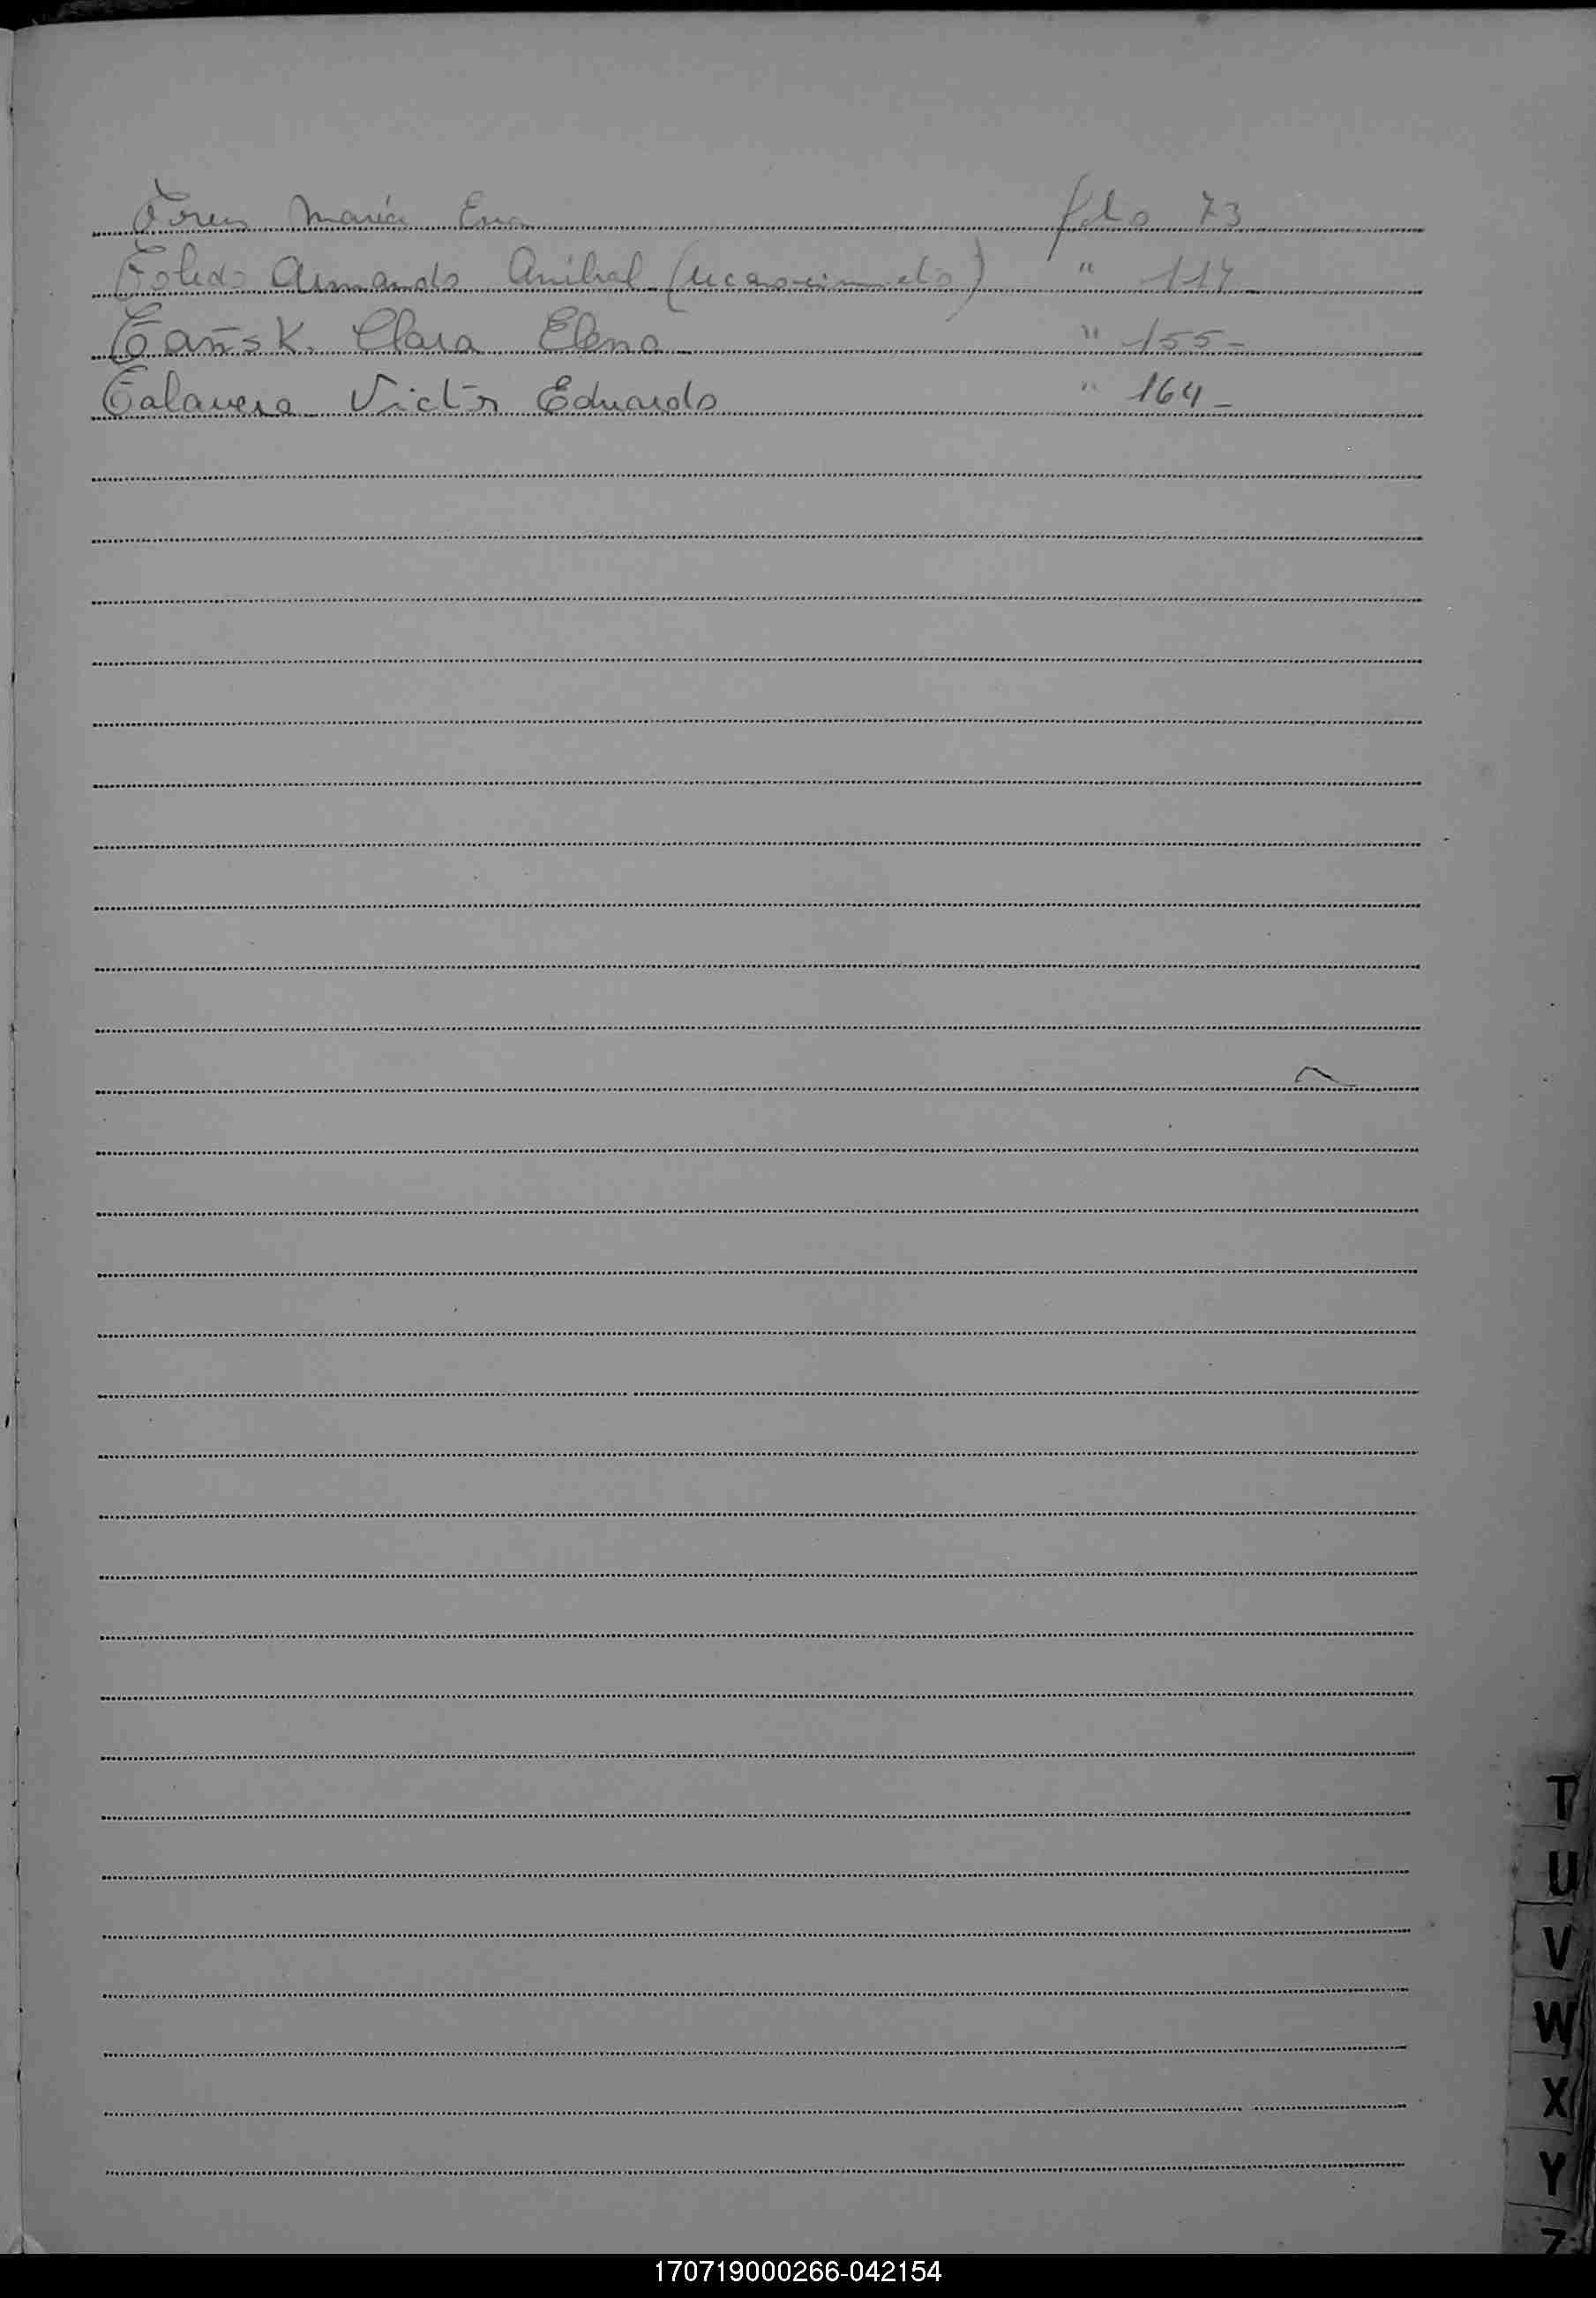 Torres María Ema folio 73
Toledo Armando Anibal (reconocimiento) " 114
Clara Elena " 155-
Talavera Victor Eduardo " 164-
T
U
V
W
X
Y
Z
170719000266-042154